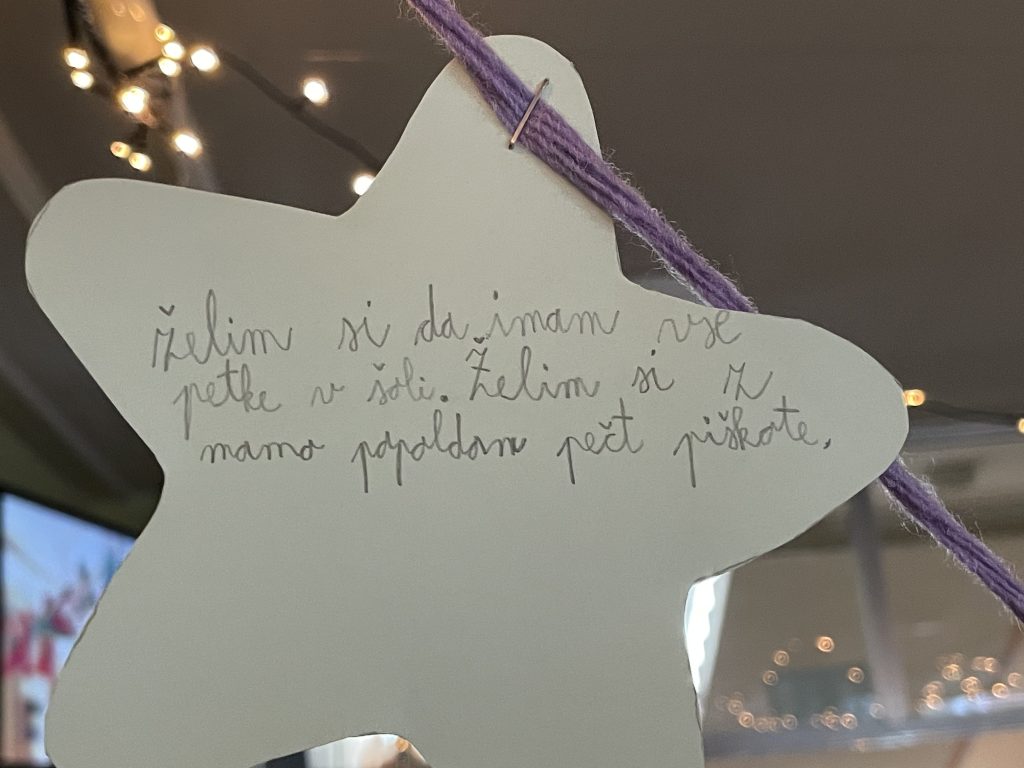 Želim si da imam vse
petke v šoli. Želim si z
mamo popoldan pečt piškote.